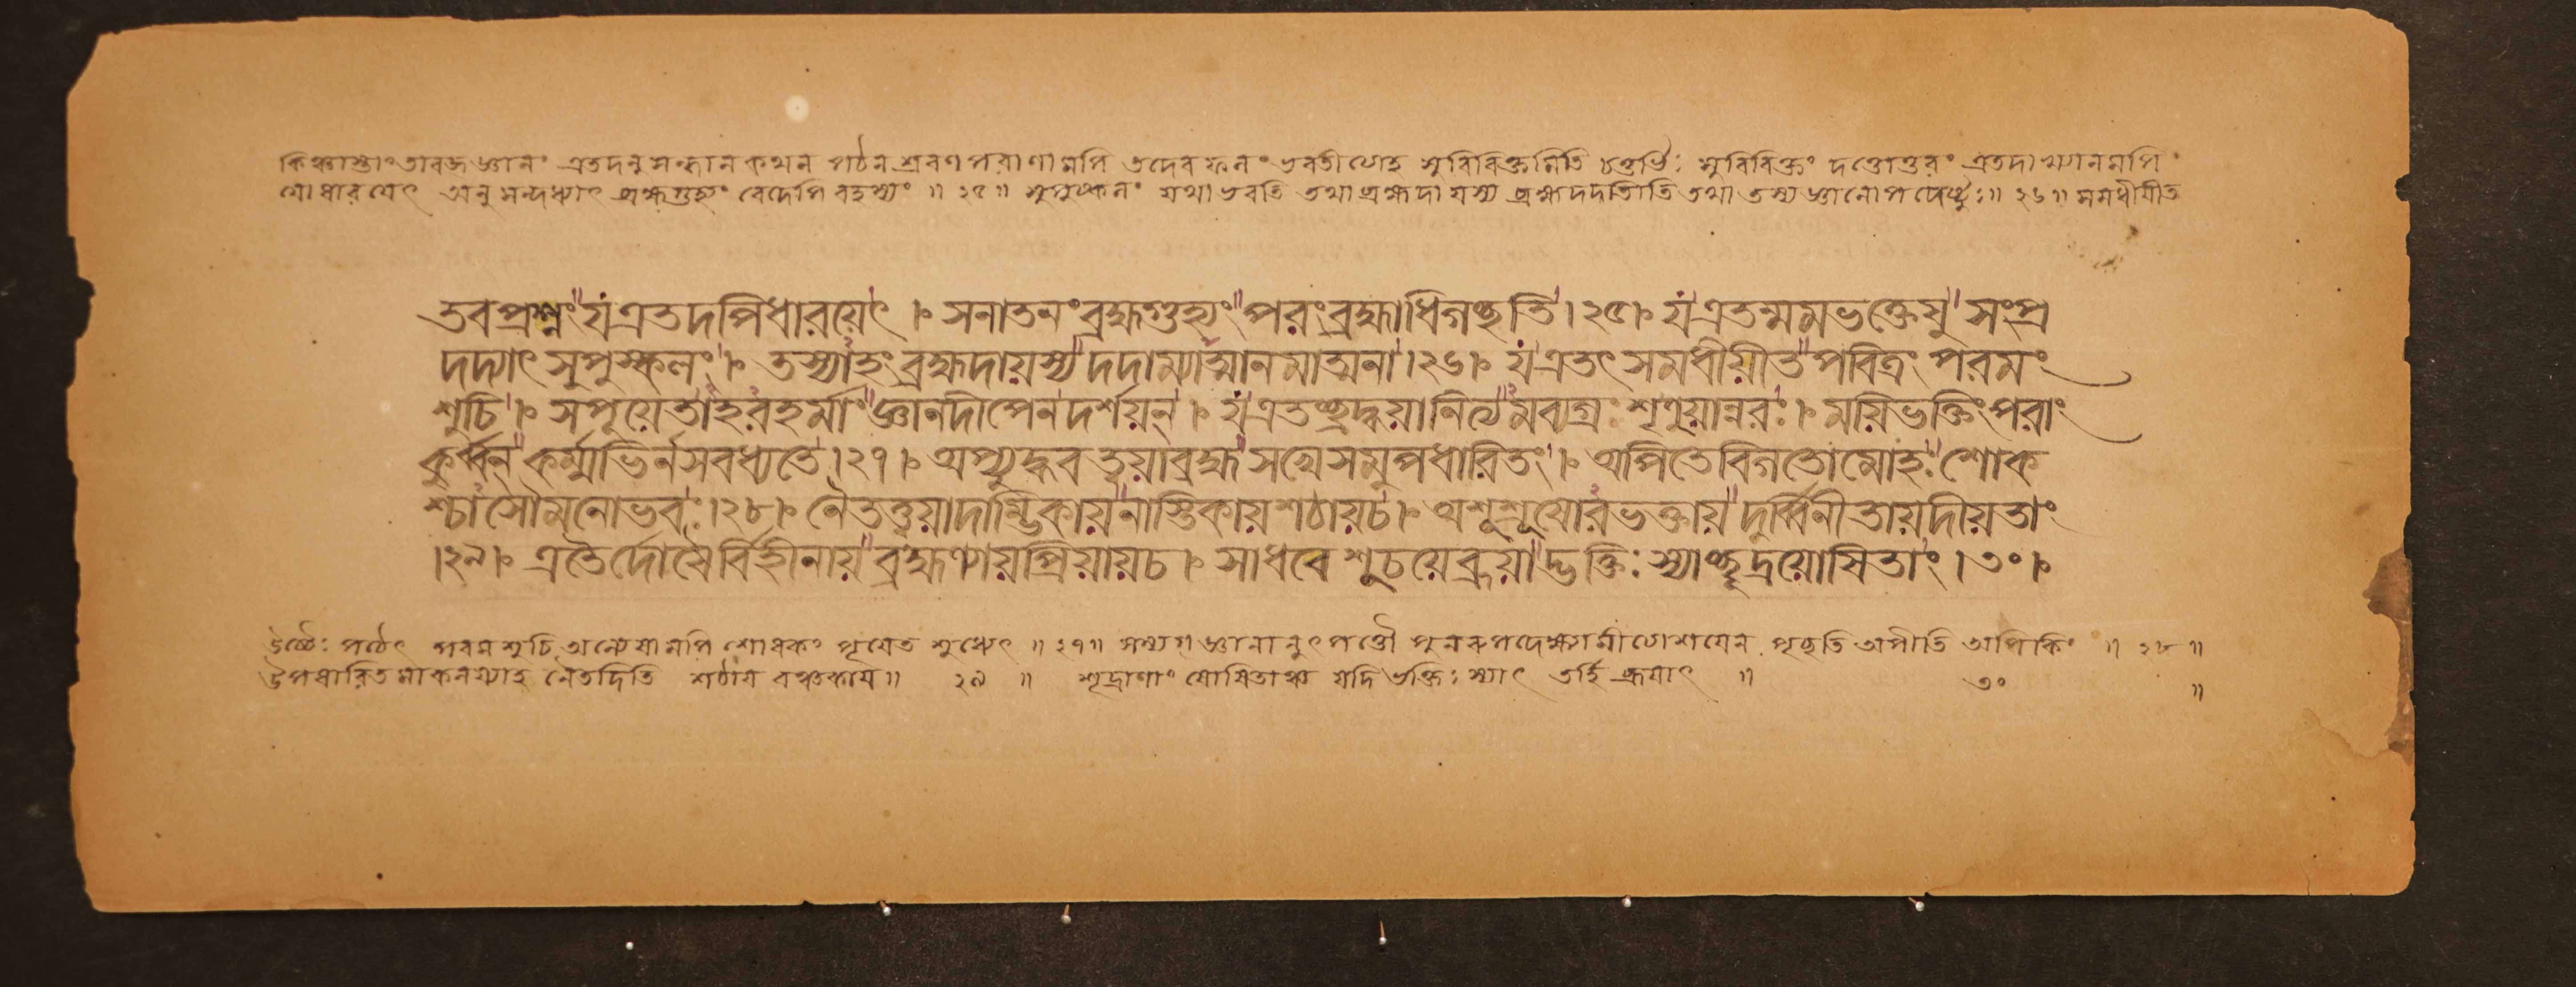 কিঞ্চাস্তাং তাবদ্ব্রহ্মজ্ঞানং এতদনুসন্ধান কথন পঠন শ্রবণপরাণামপি তদেব ফলং ভবতীত্যাহ সুবিবিক্তমিতি চতুর্ভিঃ সুবিবিক্তং দত্তোত্তরং এতদাখ্যানমপি
যো ধারয়েৎ অনুসন্দধ্যাৎ ব্রহ্মগুহ্যং বেদেপি রহস্যং ॥ ২৫ ॥ সুপুষ্কলং যথা ভবতি তথা ব্রহ্মদায়স্য ব্রহ্মদদাতীতি তথা তস্য জ্ঞানোপদেষ্টুঃ ॥ ২৬ ॥ সমধীয়ীত
তব প্রশ্নং যএতদপিধারয়েৎ । সনাতনংব্রহ্মগুহ্যং পরংব্রহ্মাধিগচ্ছতি । ২৫ । যএতন্মমভক্তেষু সংপ্র
দদ্যাৎ সুপুস্কলং । তস্যাহং ব্রহ্মদায়স্য দদাম্যাত্মানমাত্মনা । ২৬ । যএতৎ সমধীয়ীত পবিত্রং পরমং
শুচি । সপূয়েতাহরহর্মাং জ্ঞানদীপেনদর্শয়ন্ । যএতচ্ছ্রদ্ধয়ানিত্যমব্যগ্রঃ শৃণুয়ান্নরঃ । ময়িভক্তিংপরাং
কুর্ব্বন্ কর্ম্মভির্নসবধ্যতে । ২৭ । অপ্যুদ্ধব ত্বয়াব্রহ্ম সখেসমুপধারিতং । অপিতেবিগতোমোহঃ শোক
শ্চাসৌমনোভবঃ । ২৮ । নৈতত্ত্বয়াদাম্ভিকায়নাস্তিকায়শঠায়চ । অশুশ্রূষোরভক্তায় দুর্ব্বিনীতায়দীয়তাং
। ২৯ । এতৈর্দোষৈর্বিহীনায় ব্রহ্মণ্যায়প্রিয়ায়চ । সাধবে শুচয়েব্রূয়াদ্ভক্তিঃ স্যাচ্ছূদ্রয়োষিতাং । ৩০ ।
উচ্চৈঃ পঠেৎ পরমশুচি অন্যেষামপি শোধকং পূয়েত শুধ্যেৎ ॥ ২৭ ॥ সম্যগ্জ্ঞানানুৎপত্তৌ পুনরুপদেক্ষ্যামীত্যাশয়েন পৃচ্ছতি অপীতি অপিকিং ॥ ২৮ ॥
উপধারিত মাকলয্যাহ নৈতদিতি শঠায় বঞ্চকায় ॥ ২৯ ॥ শূদ্রাণাং যোষিতাঞ্চ যদি ভক্তিঃ স্যাৎ তর্হি ব্রূয়াৎ ॥ ৩০ ॥